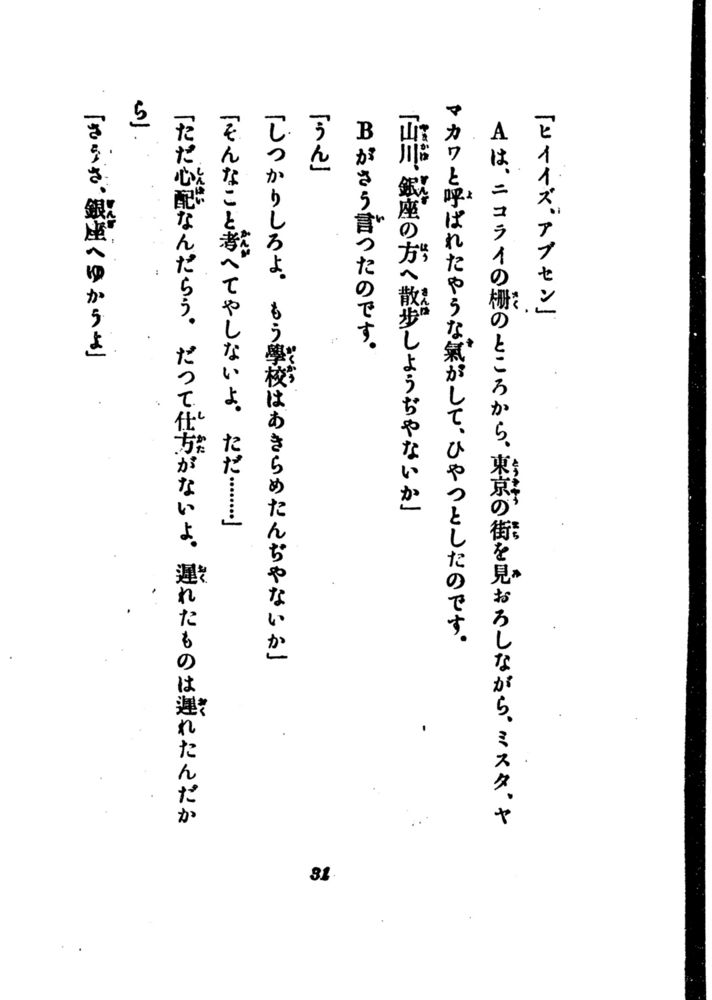 「ヒイイズ、アブセン」
Aは、ニコライの柵のところから、東京の街を見おろしながら、ミスタ、ヤ
マカワと呼ばれたやうな氣がして、ひやつとしたのです。
「山川、銀座の方へ散步しようぢやないか」
Bがさう言つたのです。
「うん」
「しつかりしろよ。もう學校はあきらめたんぢやないか」
「そんなこと考へてやしないよ。ただ………」
「ただ心配なんだらう。だつて仕方がないよ。遲れたものは遲れたんだか
ら」
「さうさ、銀座へゆかうよ」
31